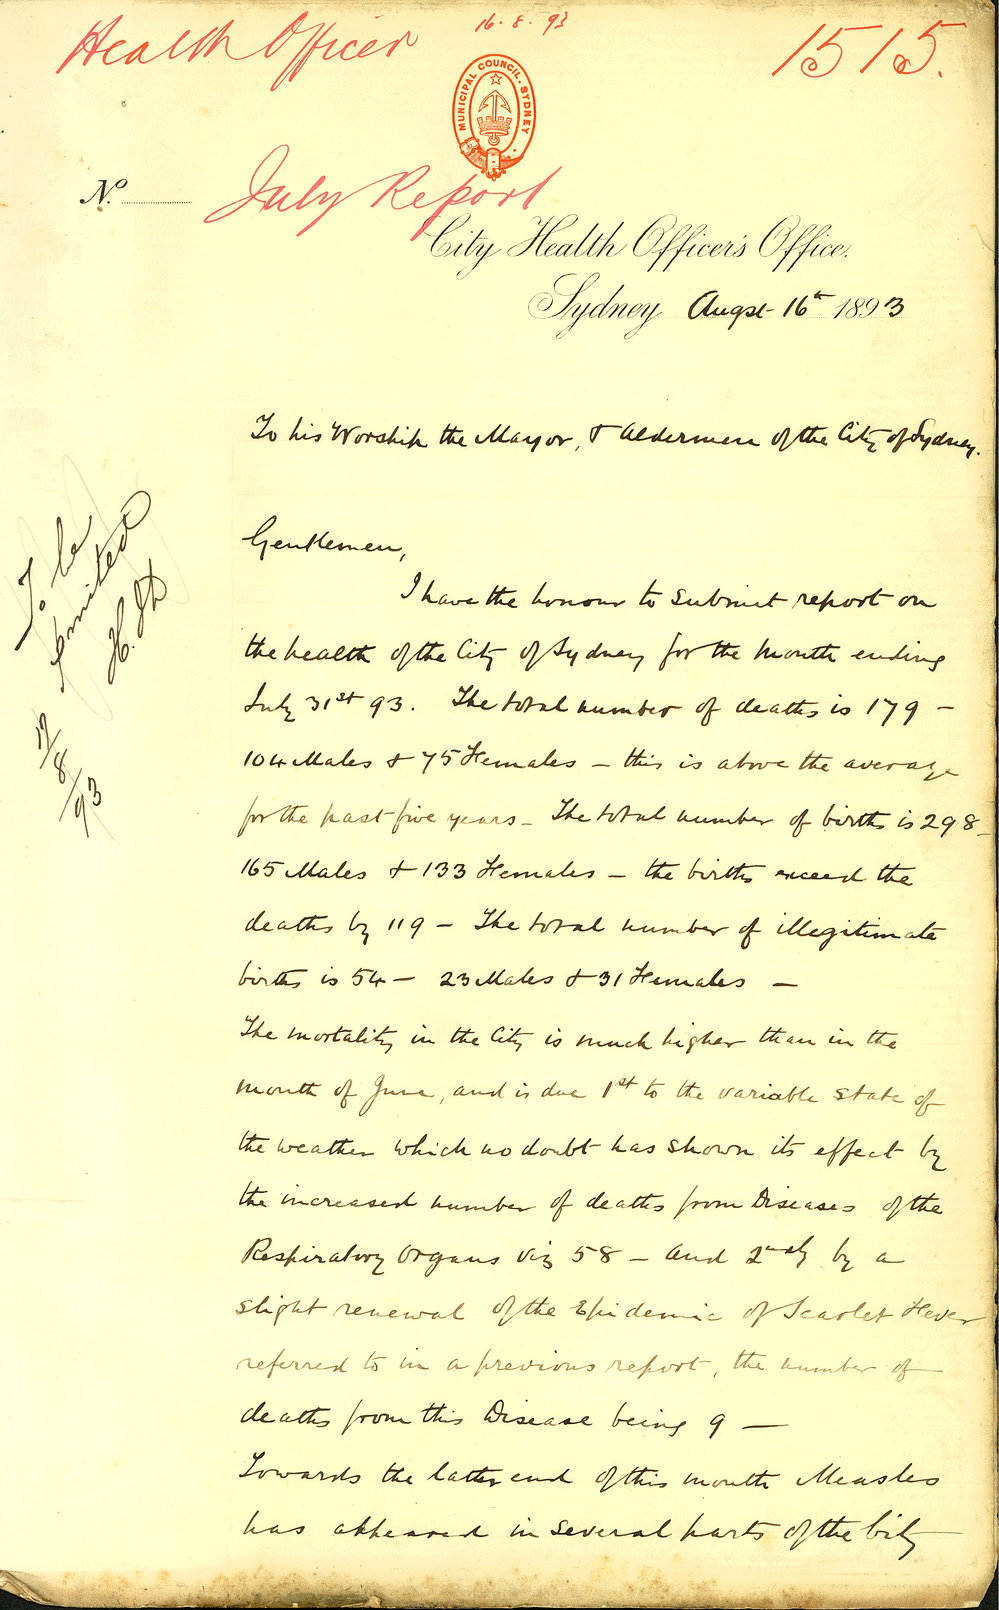 Health Officer
16. 8. 93
1515.
MUNICIPAL COUNCIL. SYDNEY
No.
July Report
City Health Officer's Office.
Sydney Augst 16th 1893
To his Worship the Mayor, & Aldermen of the City of Sydney.
To be
printed
17/8/93
Gentlemen,
I have the honour to submit report on
the health of the City of Sydney for the month ending
July 31st 93. The total number of deaths is 179 –
104 Males & 75 Females – this is above the average
for the past five years – The total number of births is 298 –
165 Males & 133 Females – the births exceed the
deaths by 119 – The total number of illegitimate
births is 54 – 23 Males & 31 Females –
The mortality in the City is much higher than in the
month of June, and is due 1st to the variable state of
the weather which no doubt has shown its effect by
the increased number of deaths from Diseases of the
Respiratory Organs viz 58 – and 2ndly by a
slight renewal of the Epidemic of Scarlet Fever
referred to in a previous report, the number of
deaths from this Disease being 9 –
Towards the latter end of this month Measles
has appeared in several parts of the City